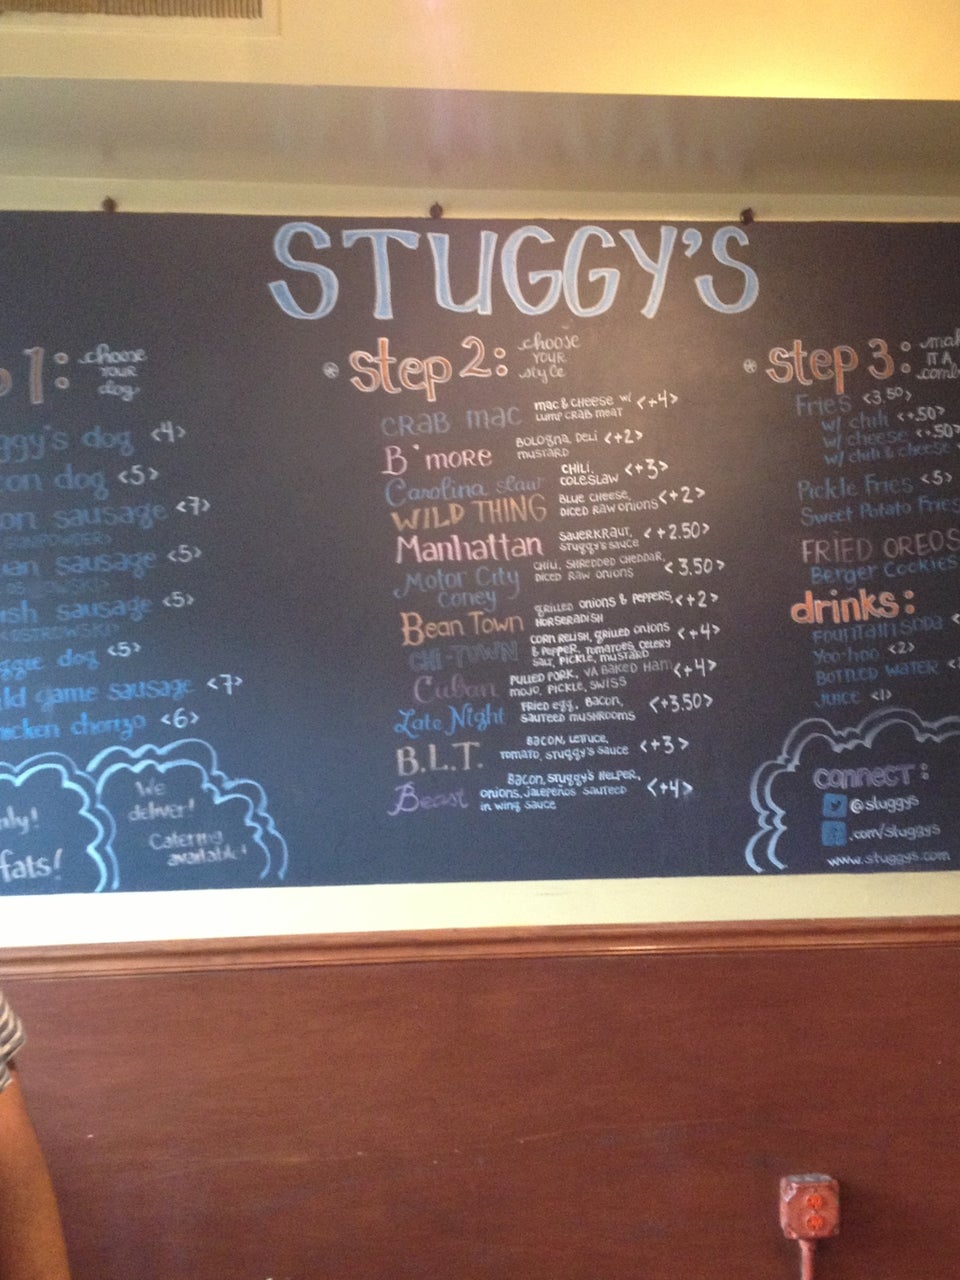 STUGGY'S
1: choose
YOUR
dog
dog <4>
dog <5>
sausage <7>
sausage <5>
sausage <5>
dog <5>
game sausage <7>
chorizo <6>
We
deliver!
Catering
available!
fats!
* step 2: choose
YOUR
style
CRAB MAC MAC & CHEESE W/
LUMP CRAB MEAT <+4>
B'more BOLOGNA, DELI
MUSTARD <+2>
Carolina Slaw CHILI,
COLESLAW <+3>
WILD THING BLUE CHEESE,
DICED RAW ONIONS <+2>
Manhattan SAUERKRAUT,
STUGGY'S SAUCE <+2.50>
Motor City
Coney CHILI, SHREDDED CHEDDAR,
DICED RAW ONIONS <3.50>
Bean Town GRILLED ONIONS & PEPPERS,
HORSERADISH <+2>
CHI-TOWN CORN RELISH, GRILLED ONIONS
& PEPPER, TOMATOES, CELERY
SALT, PICKLE, MUSTARD <+4>
Cuban PULLED PORK, VA BAKED HAM
MOJO, PICKLE, SWISS <+4>
Late Night FRIED EGG, BACON,
SAUTEED MUSHROOMS <+3.50>
B.L.T. BACON, LETTUCE,
TOMATO, STUGGY'S SAUCE <+3>
Beast BACON, STUGGY'S HELPER,
ONIONS, JALEPEÑOS SAUTEED
IN WING SAUCE <+4>
* step 3:
IT A
Fries <3.50>
w/ chili <+.50>
w/ cheese <+.50>
w/ chili & cheese
Pickle Fries <5>
Sweet Potato Fries
FRIED OREOS
Berger Cookies
drinks:
FOUNTAIN SODA
Yoo-hoo <2>
BOTTLED WATER
JUICE <1>
CONNECT:
@stuggys
.com/stuggys
www.stuggys.com